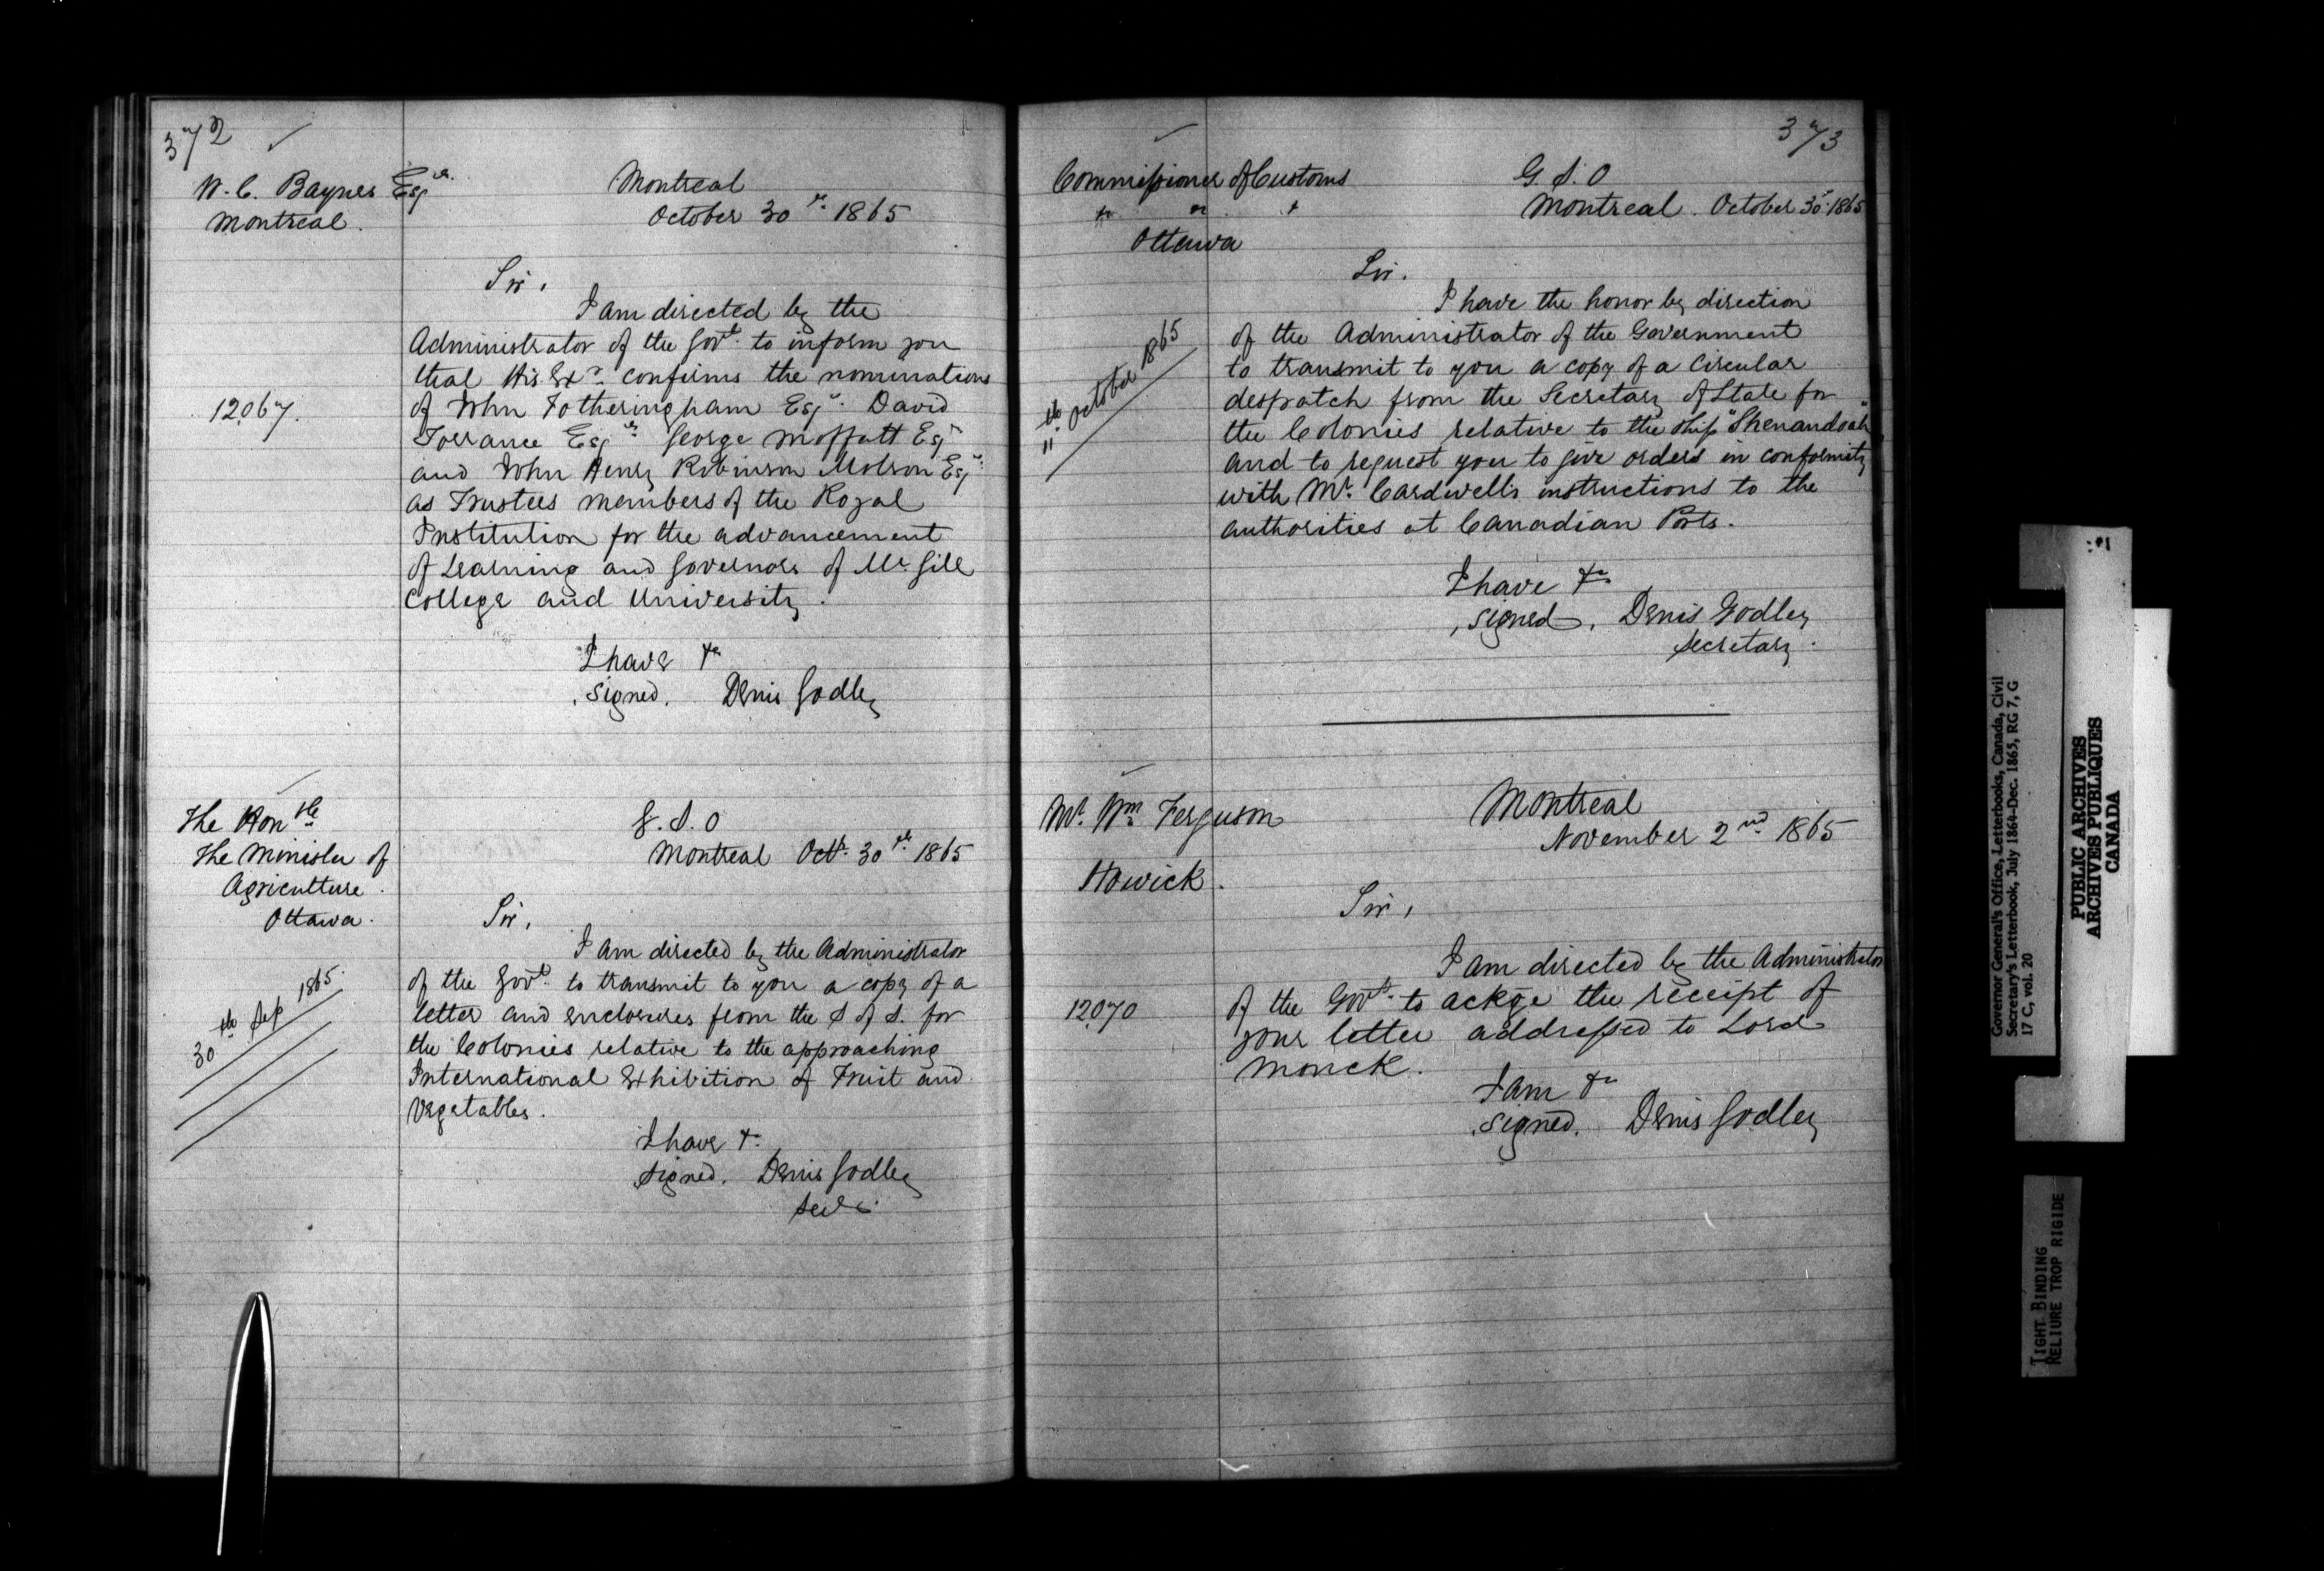 372
W. C. Baynes Esqre.
Montreal.
Montreal
October 30th. 1865
Sir,
I am directed by the
Administrator of the Govt. to inform you
that His Exy. confirms the nominations
12067.
of John Fotheringham Esqr. David
Torrance Esqre. George Moffatt Esqr
and John Henry Robinson Molson Esqr.
as Trustees members of the Royal
Institution for the advancement
of Learning and Governors of Mc. Gill
College and University.
I have &c
signed. Denis Godley
The Honble
The Minister of
Agriculture.
Ottawa.
G. S. O
Montreal Octr. 30th. 1865
Sir,
I am directed by the Administrator
30th Sep 1865.
of the Govt. to transmit to you a copy of a
letter and enclosures from the S of S. for
the Colonies relative to the approaching
International Exhibition of Fruit and
Vegetables.
I have &c.
signed. Denis Godley
373
Commissioner of Customs
" " "
Ottawa
G. S. O
Montreal. October 30th. 1865
Sir.
I have the honor by direction
11th. October 1865
of the Administrator of the Government
to transmit to you a copy of a Circular
despatch from the Secretary of State for
the Colonies relative to the ship "Shenandoah"
and to request you to give orders in conformity
with Mr. Cardwell's instructions to the
authorities at Canadian Ports.
I have &c
signed. Denis Godley
Secretary.
Mr. Wm. Ferguson
Howick.
Montreal
November 2nd. 1865
Sir,
I am directed by the Administrator
12070
of the Govt. to ackge the receipt of
your letter addressed to Lord
Monck.
I am &c
signed. Denis Godley
Governor General's Office, Letterbooks, Canada, Civil
Secretary's Letterbook, July 1864-Dec. 1865, RG 7, G
17 C, vol. 20
PUBLIC ARCHIVES
ARCHIVES PUBLIQUES
CANADA
TIGHT BINDING
RELIURE TROP RIGIDE